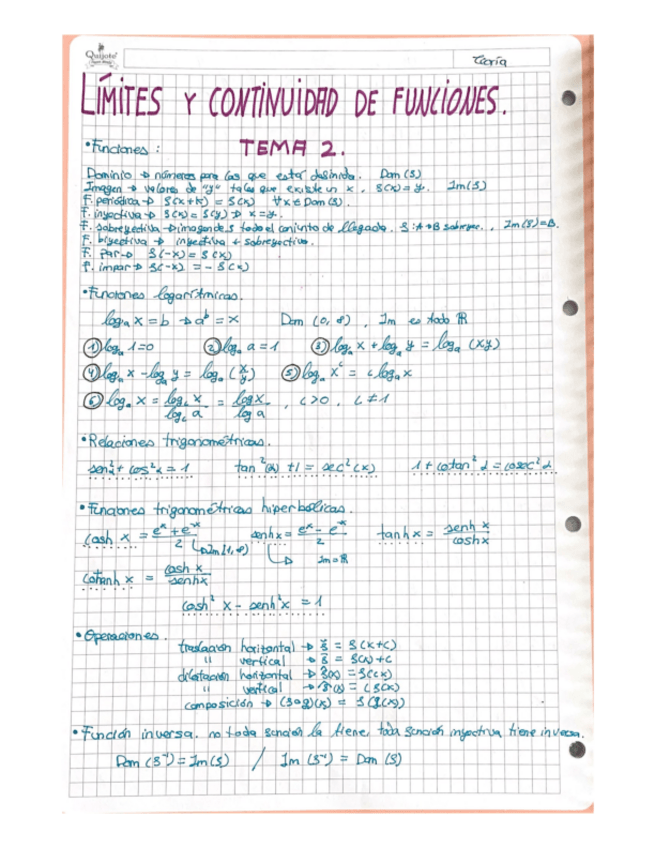 Quijote
Teoría
LÍMITES Y CONTINUIDAD DE FUNCIONES.
TEMA 2.
• Funciones:
Dominio → números para las que está definida. Dom (f)
Imagen → valores de "y" tales que existe un x, f(x) = y. Im(f)
F. periódica → f(x+k) = f(x) ∀x ∈ Dom(f).
F. inyectiva → f(x) = f(y) ⇒ x = y.
F. sobreyectiva → imagen de f todo el conjunto de llegada. f: A→B sobreyec., Im(f) = B.
F. biyectiva → inyectiva + sobreyectiva.
F. Par → f(-x) = f(x)
F. impar → f(-x) = - f(x)
• Funciones logarítmicas.
logₐ x = b → aᵇ = x Dom (0, ∞), Im es todo ℝ
① logₐ 1 = 0 ② logₐ a = 1 ③ logₐ x + logₐ y = logₐ (xy)
④ logₐ x - logₐ y = logₐ (x/y) ⑤ logₐ xᶜ = c logₐ x
⑥ logₐ x = log_c x / log_c a = log x / log a, c > 0, c ≠ 1
• Relaciones trigonométricas.
sen²α + cos²α = 1 tan²(α) + 1 = sec²(x) 1 + cotan²α = cosec²α
• Funciones trigonométricas hiperbólicas.
cosh x = (eˣ + e⁻ˣ)/2 → Im [1, ∞) senh x = (eˣ - e⁻ˣ)/2 → Im = ℝ tanh x = senh x / cosh x
cotanh x = cosh x / senh x
cosh² x - senh² x = 1
• Operaciones.
traslación horizontal → f̃ = f(x+c)
" vertical → f̃ = f(x)+c
dilatación horizontal → f̃(x) = f(cx)
" vertical → f̃(x) = c f(x)
composición → (f∘g)(x) = f(g(x))
• Función inversa. no toda función la tiene, toda función inyectiva tiene inversa.
Dom (f⁻¹) = Im(f) / Im (f⁻¹) = Dom (f)